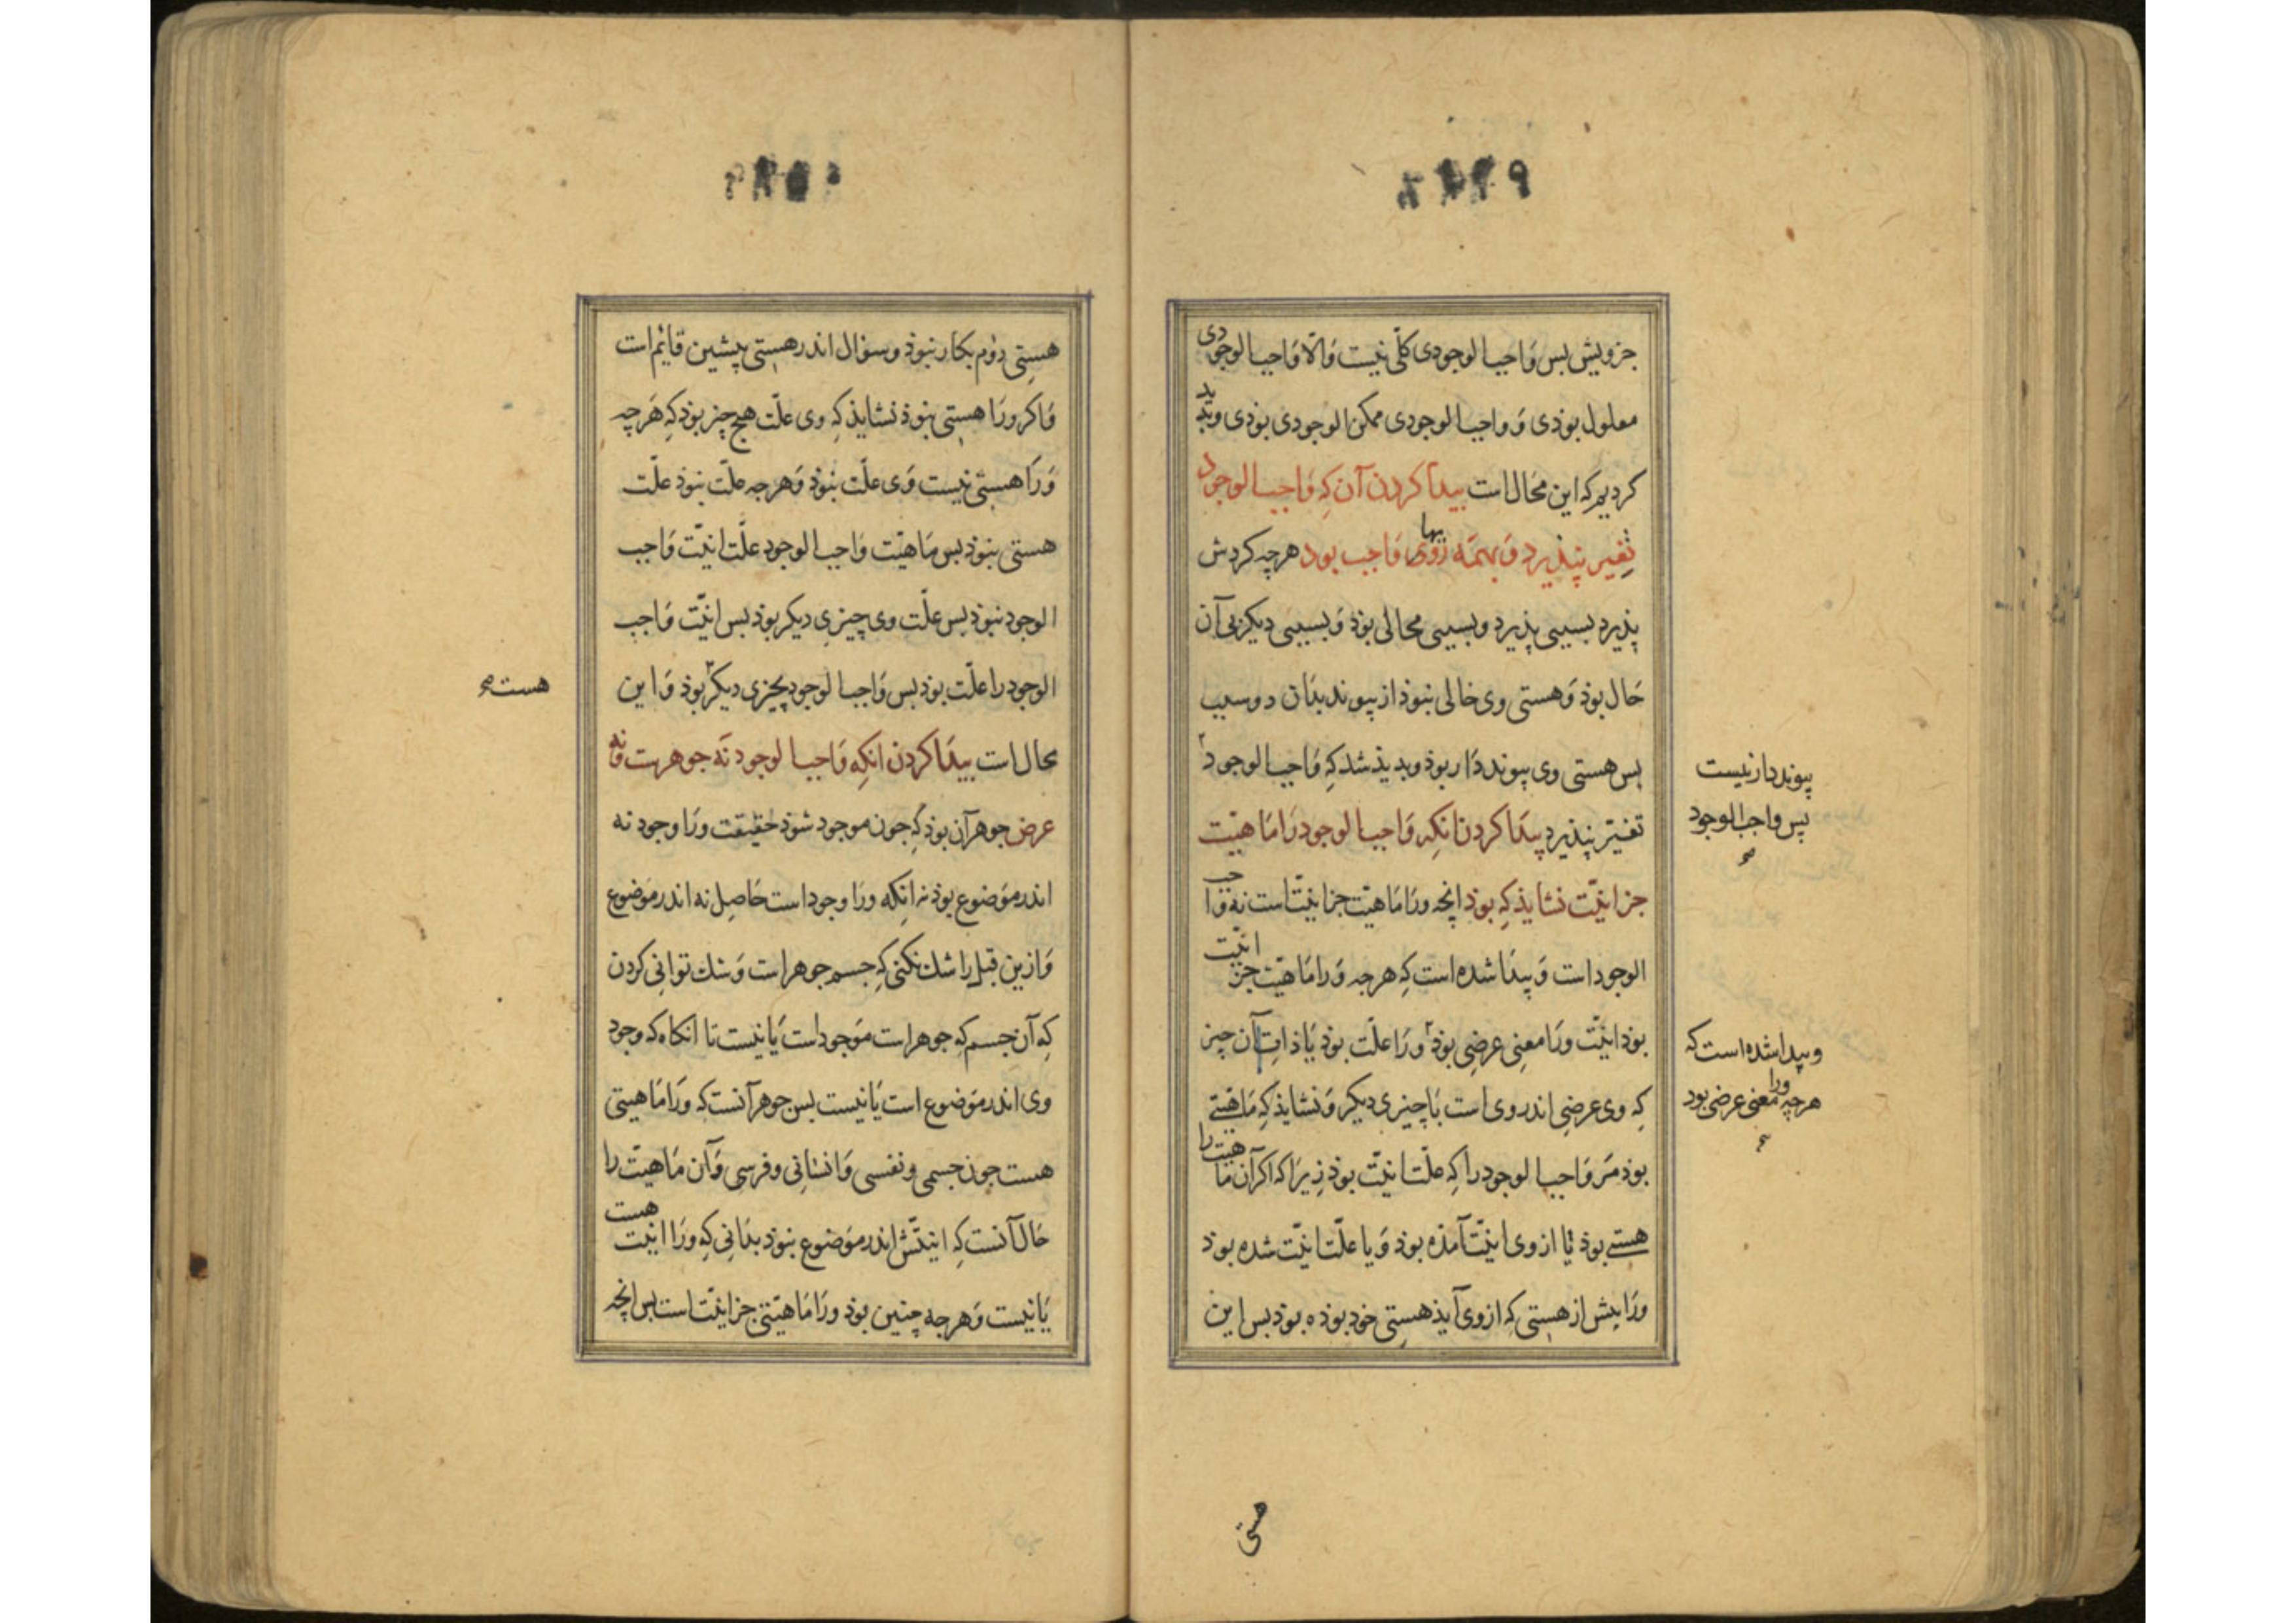 جزویش بس وَاجب الوجودی کلّی نیست وَالّا وَاجب الوجودی
معلول بوذی وَ واجب الوجودی ممکن الوجودی بوذی وبدید
کردیم که این محال است بیدا کردن آن کِه وَاجب الوجود
تغیر نپذیرد وَ بهمَه رویها وَاجب بود هرچه کردش
پذیرد بسببی پذیرد وبسببی محالی بوذ وَبسببی دیکر بی آن
حَال بوذ وَهستی وی خالی نبوذ از پیوند بدَان دو سبب
بس هستی وی پیوند دَار بوذ وبدیذ شد کِه وَاجب الوجود
پیوند دار نیست
پس واجب الوجود
صح
تغیّر نپذیرد پیدَا کردن انکِه وَاجب الوجود رَا مَاهیّت
جز انیّت نشایذ کِه بوذ انچه ورَا مَاهیّت جز انیّت است نه وَاجب
الوجود است وَ پیدَا شده است کِه هرجه وَرا مَاهیّت جز انیّت
بوذ انیّت ورَا معنِی عرضِی بوذ وَرَا علّت بوذ یَا ذاتِ آن چیز
وپیدا شده است که
هرچه ورا معنی عرضی بود
صح
کِه وی عرضِی اندر وی است یَا چیزی دیکر وَنشایذ کِه مَاهیّتی
بوذ مَر وَاجب الوجود را کِه علّت انیّت بوذ زیرَا که اکر آن ماهیّت را
هستی بوذ تا از وی انیّت آمذه بوذ وَ یا علّت انیّت شده بوذ
ورَا بیش از هستِی کِه از وی آیذ هستِی خود بوذه بوذ بس این
هستی
هستِی دوُم بکار نبوذ وسؤال اندر هستِی پیشین قایٔم است
وَاکر ورَا هستِی نبوذ نشایذ کِه وی علّت هیج چیز بوذ کِه هَرچه
وَرَا هستِی نیست وَی علّت نبوذ وَهرجه علّت نبوذ علّت
هستی نبوذ بس مَاهیّت وَاجب الوجود علّت انیّت وَاجب
الوجود نبوذ بس علّت وی چیزِی دیکر بوذ بس انیّت وَاجب
الوجود را علّت بوذ بس وَاجب الوجود بچیزی دیکر بوذ وَاین
هست صح
محال است بیدَا کردن انکِه وَاجب الوجود نَه جوهرست وَنَه
عرض جوهر آن بوذ کِه جون موجود شوذ حقیقت ورَا وجود نه
اندر موَضوع بوذ نه انکِه ورَا وجود است حَاصِل نه اندر موَضوع
وَازین قبل را شک نکنی کِه جسم جوهر است وَشک توانی کردن
کِه آن جسم کِه جوهر است موَجود است یَا نیست تا انکاه که وجود
وی اندر موَضوع است یَا نیست بس جوهر آنست که ورَا مَاهیتی
هست جون جسمی ونفسی وَانسَانی وفرسی وَآن مَاهیّت را
حَال آنست کِه انیتّش اندر موَضوع نبوذ بدَانی کِه ورَا انیّت هست
یَا نیست وَهرجه چنین بوذ ورَا مَاهیّتی جز انیّت است بس انچه